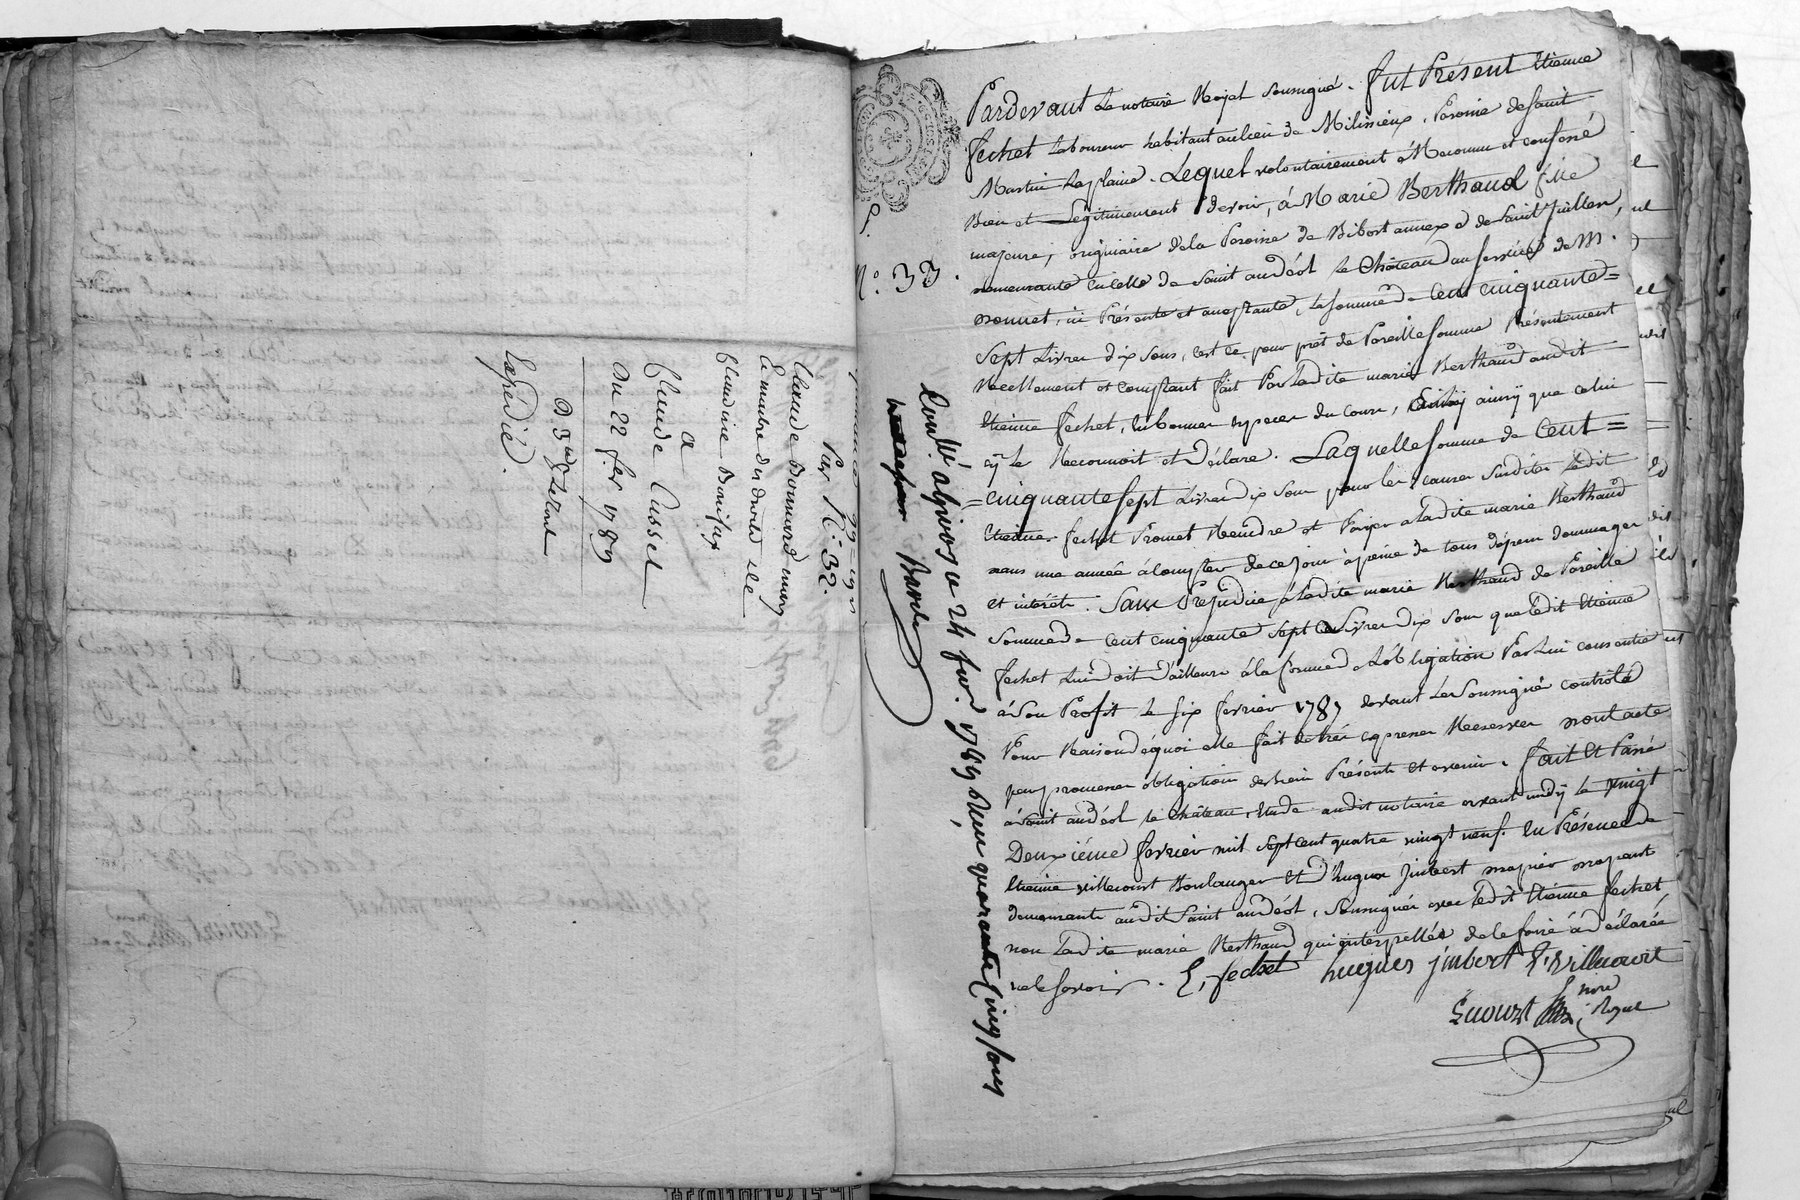 Claude Bonnard
Le maitre des droits de
Claudine Bonifax
Par N.º 32.
a
Claude Cussel
Du 22 fer 1789
Expédié.
N.º 33.
Pardevant Le notaire Royal soussigné. fut Présent Etienne
fechet Laboureur habitant au lieu de Milissieux, Paroisse de saint
Martin La plaine. Lequel volontairement a Reconnu et confessé
Bien et Légitimement devoir, à Marie Berthaud fille
majeure, originaire de la Paroisse de Bibost annexe de Saint Jullien,
demeurante en celle de Saint andéol le Château au service de M.
monnet, ici Présente et acceptante, La somme de Cent cinquante=
sept Livres dix sous, c'est ce pour prêt de Pareille somme Présentement
Réellement et comptant fait Par Ladite marie Berthaud audit
Etienne fechet, en bonnes espèces du cours, ainsy que celui
cy le Reconnoit et Déclare. Laquelle somme de Cent=
=cinquante sept Livres dix sous pour les causes susdites Ledit
Etienne fechet Promet Rendre et Payer a Ladite marie Berthaud
dans une année à compter de ce jour à peine de tous dépens dommages
et intérêts. Sans Préjudice à Ladite marie Berthaud de Pareille
somme de cent cinquante sept Livres dix sous que Ledit Etienne
fechet Lui doit d'ailleurs à la forme de L'obligation Par Lui consentie
à son Profit le six fevrier 1787 devant Le Soussigné controlé
Pour Raison de quoi elle fait de très expresses Reserves dont acte
par promesses obligation de biens Présents et avenir. fait et Passé
à Saint andéol le Château, Etude dudit notaire avant midy le vingt
Deuxième fevrier mil sept cent quatre vingt neuf. En Présence de
Etienne villecourt Boulanger et d'hugues jmbert
demeurants audit Saint andéol, soussignés avec Ledit Etienne fechet
non Ladite marie Berthaud qui interpellée de le faire a déclaré
ne le savoir. E, fechet hugues jmbert E. villecourt
nore
Royal
Conlé a givors ce 24 fvr. 1789 Reçu quarante cinq sous